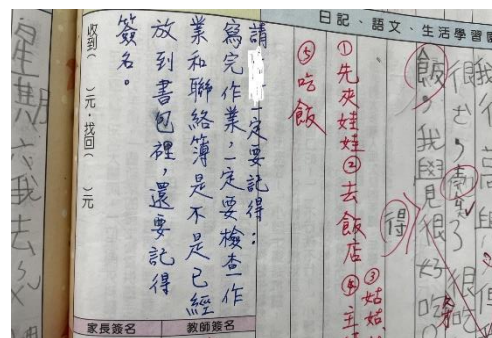 日記、語文、生活學習園
飯，我與見很好吃
得
①先夾娃娃②去飯店
③姑姑
④主
⑤吃飯
請 一定要記得：
寫完作業，一定要檢查作
業和聯絡簿是不是已經
放到書包裡，還要記得
簽名。
收到（ ）元，找回（ ）元
教師簽名
家長簽名
星期六我去